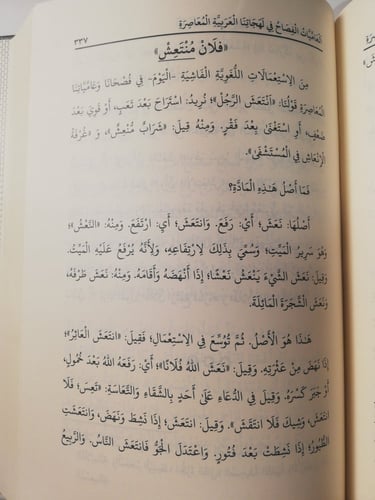 عَامِّيَّاتُ الْفِصَاحِ فِي لَهَجَاتِنَا الْعَرَبِيَّةِ الْمُعَاصِرَةِ ٣٣٧
«فُلَانٌ مُنْتَعِشٌ»
مِنَ الِاسْتِعْمَالَاتِ اللُّغَوِيَّةِ الْفَاشِيَةِ -الْيَوْمَ- فِي فُصْحَانَا وَعَامِّيَّاتِنَا
الْمُعَاصَرَةِ قَوْلُنَا: «انْتَعَشَ الرَّجُلُ»؛ نُرِيدُ: اسْتَرَاحَ بَعْدَ تَعَبٍ، أَوْ قَوِيَ بَعْدَ
ضَعْفٍ، أَوِ اسْتَغْنَى بَعْدَ فَقْرٍ. وَمِنْهُ قِيلَ: «شَرَابٌ مُنْعِشٌ»، وَ «غُرْفَةُ
الْإِنْعَاشِ فِي الْمُسْتَشْفَى».
فَمَا أَصْلُ هَذِهِ الْمَادَّةِ؟
أَصْلُهَا: نَعَشَ؛ أَيْ: رَفَعَ. وَانْتَعَشَ؛ أَيْ: ارْتَفَعَ. وَمِنْهُ: «النَّعْشُ»؛
وَهُوَ سَرِيرُ الْمَيِّتِ؛ وَسُمِّيَ بِذَلِكَ لِارْتِفَاعِهِ، وَلِأَنَّهُ يُرْفَعُ عَلَيْهِ الْمَيِّتُ.
وَقِيلَ: نَعَشَ الشَّيْءَ يَنْعَشُ نَعْشًا؛ إِذَا أَنْهَضَهُ وَأَقَامَهُ. وَمِنْهُ: نَعَشَ طَرْفَهُ،
وَنَعَشَ الشَّجَرَةَ الْمَائِلَةَ.
هَذَا هُوَ الْأَصْلُ. ثُمَّ تُوُسِّعَ فِي الِاسْتِعْمَالِ؛ فَقِيلَ: «انْتَعَشَ الْعَاثِرُ»؛
إِذَا نَهَضَ مِنْ عَثْرَتِهِ. وَقِيلَ: «نَعَشَ اللهُ فُلَانًا»؛ أَيْ: رَفَعَهُ اللهُ بَعْدَ خُمُولٍ،
أَوْ جَبَرَ كَسْرَهُ. وَقِيلَ فِي الدُّعَاءِ عَلَى أَحَدٍ بِالشَّقَاءِ وَالتَّعَاسَةِ: «تَعِسَ؛ فَلَا
انْتَعَشَ، وَشِيكَ فَلَا انْتَقَشَ». وَقِيلَ: انْتَعَشَ؛ إِذَا نَشِطَ وَنَهَضَ، وَانْتَعَشَتِ
الطُّيُورُ؛ إِذَا نَشِطَتْ بَعْدَ فُتُورٍ. وَاعْتَدَلَ الْجَوُّ فَانْتَعَشَ النَّاسُ. وَالرَّبِيعُ